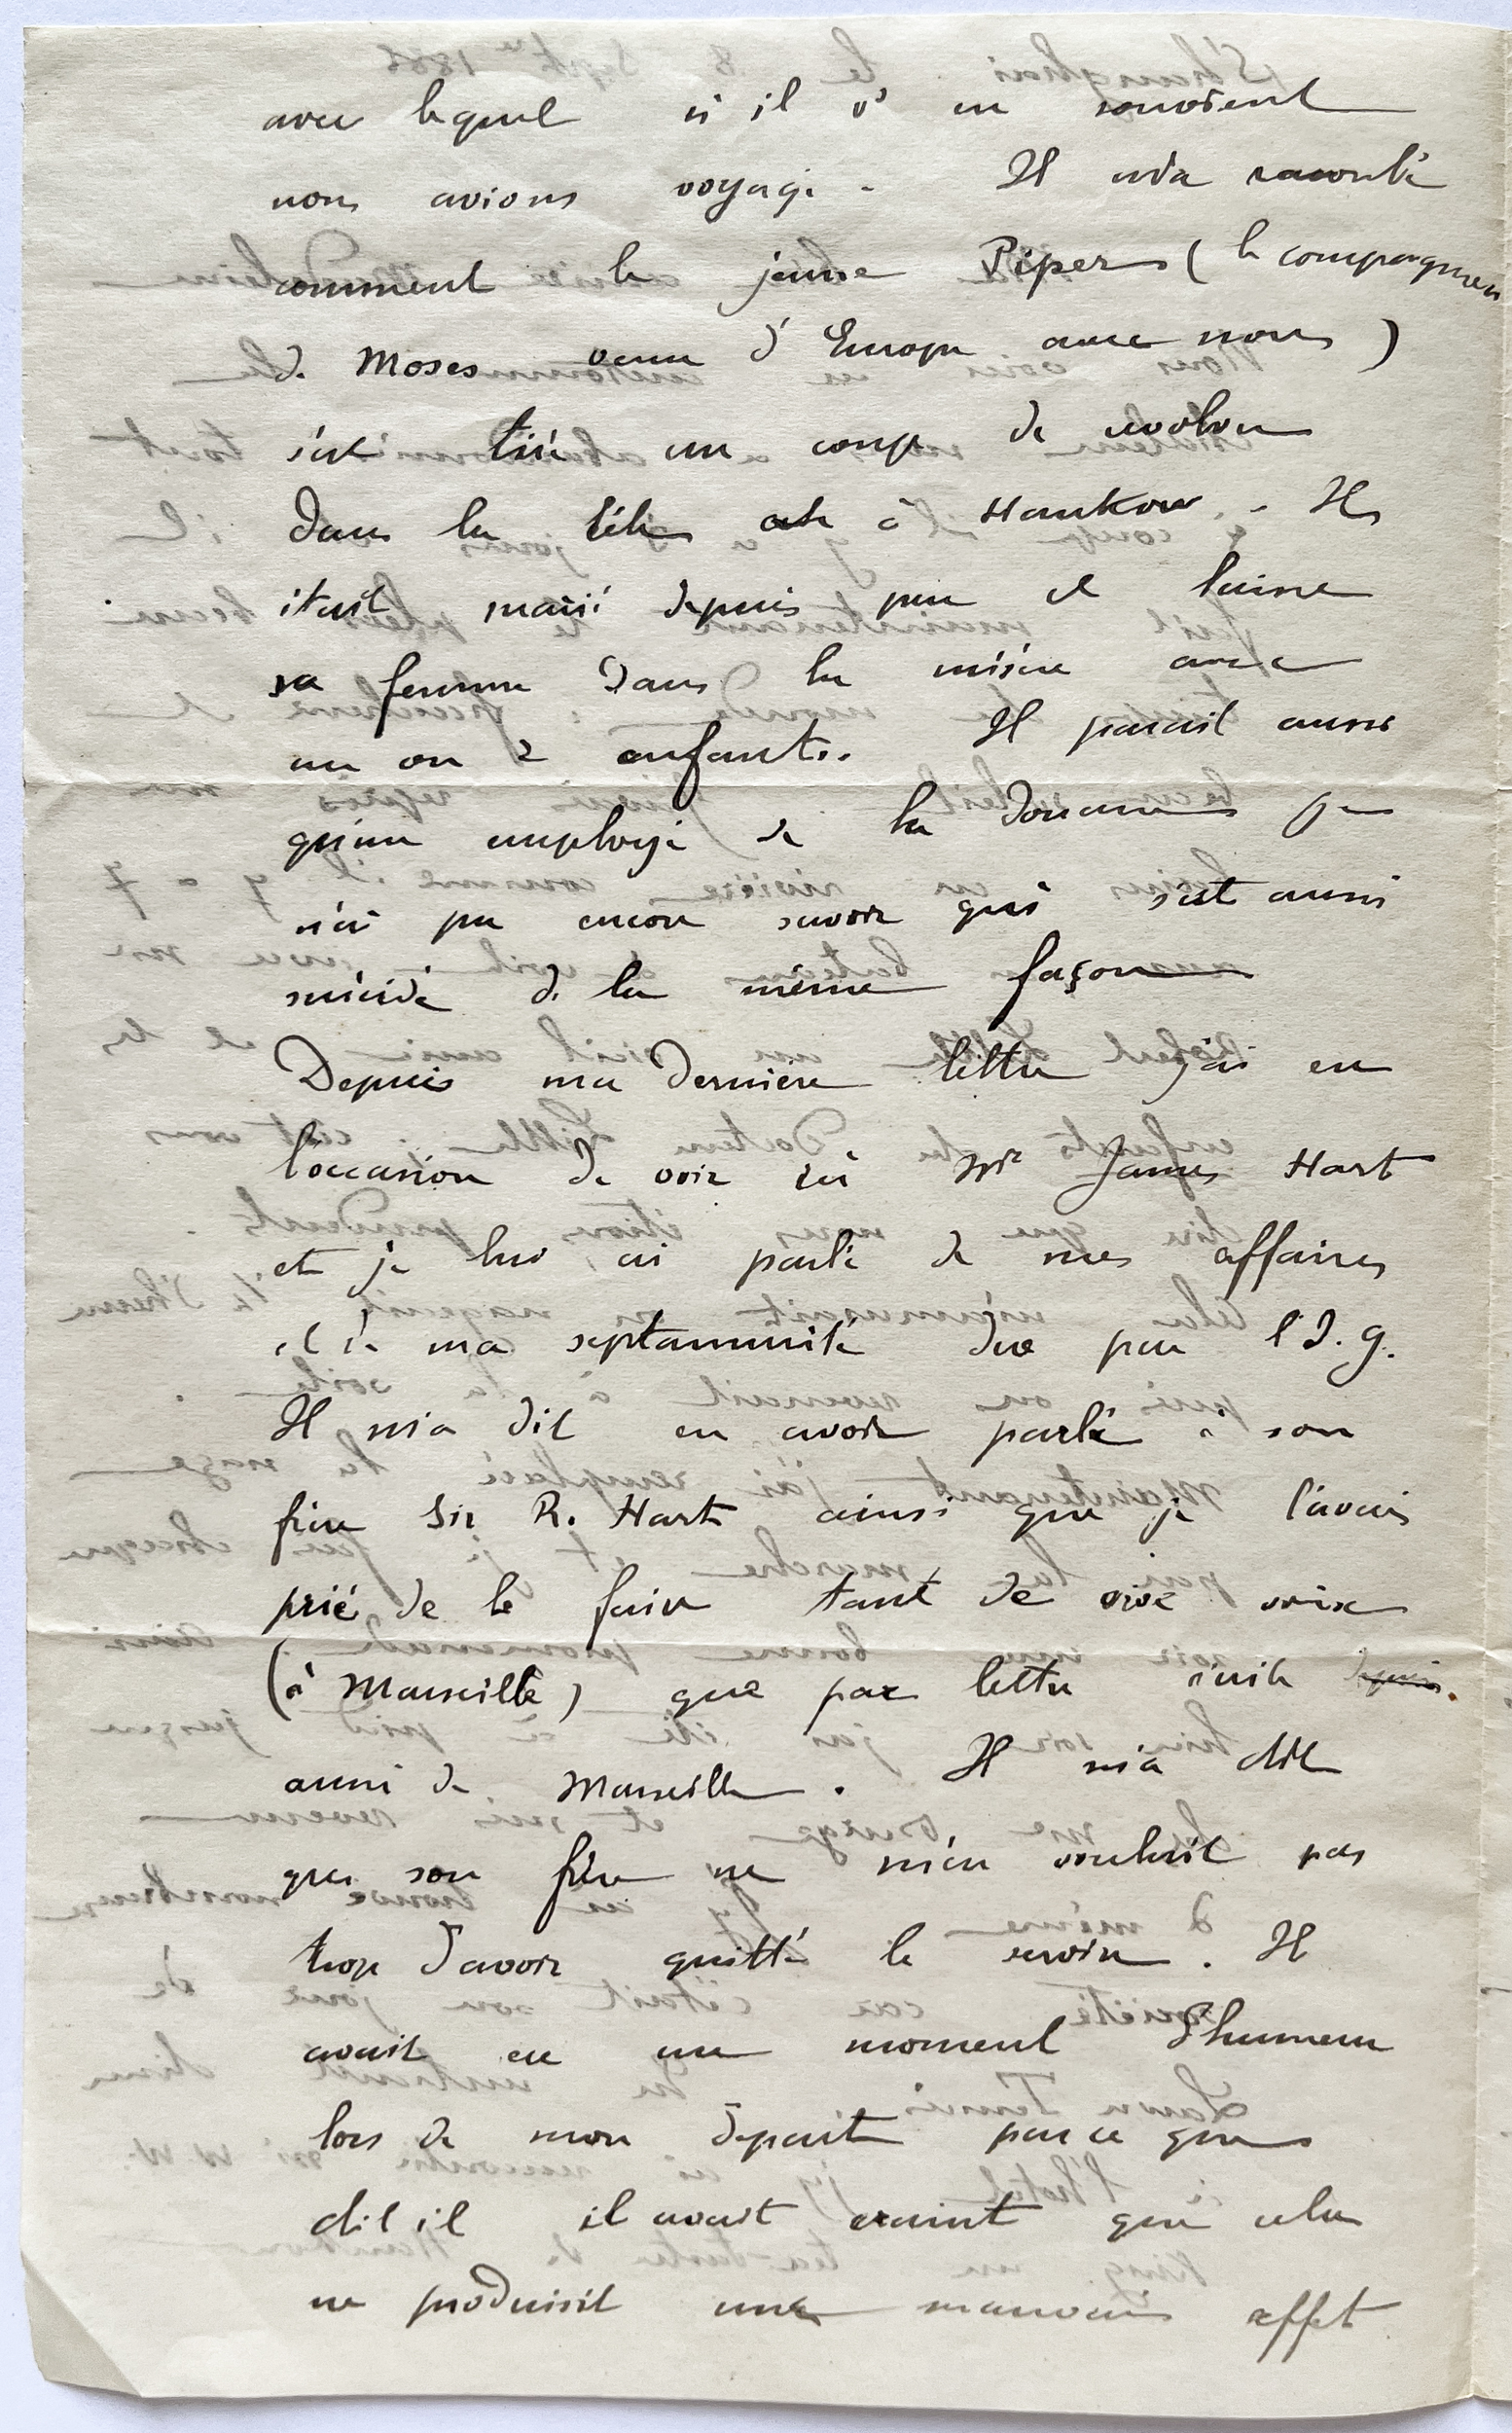 avec lequel si il s'en souvient
nous avions voyagé. Il m'a raconté
comment le jeune Piper (le compagnon
de Moses venu d'Europe avec nous)
s'est tiré un coup de revolver
dans la tête à Hankow. Il
était marié depuis peu et laisse
sa femme dans la misère avec
un ou 2 enfants. Il parait aussi
qu'un employé de la Douane je
n'ai pu encore savoir qui s'est aussi
suicidé de la même façon
Depuis ma dernière lettre j'ai eu
l'occasion de voir ici Mr James Hart
et je lui ai parlé de mes affaires
et de ma septannuité due par l'I.G.
Il m'a dit en avoir parlé à son
frère Sir R. Hart ainsi que je l'avais
prié de le faire tant de vive voix
(à Marseille) que par lettre écrite depuis
aussi de Marseille. Il m'a dit
que son frère ne m'en voulait pas
trop d'avoir quitté le service. Il
avait eu un moment d'humeur
lors de mon départ parce que
dit il il avait craint que cela
ne produisit un mauvais effet